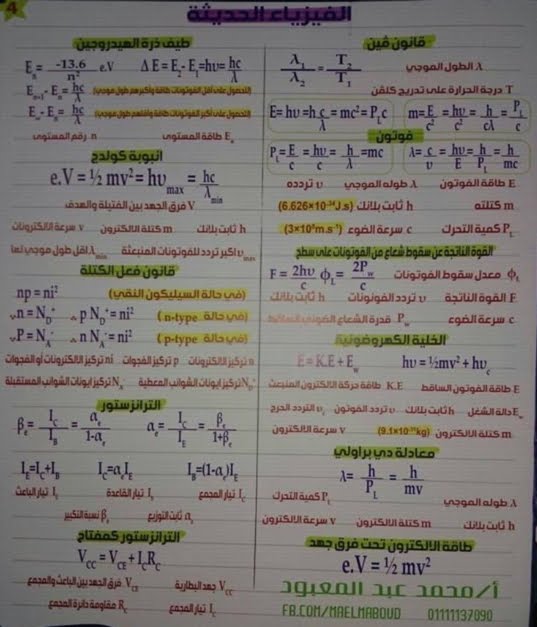 4
الفيزياء الحديثة
قانون ڤين
λ₁/λ₂ = T₂/T₁
λ الطول الموجي
T درجة الحرارة على تدريج كلفن
E= hυ = h c/λ = mc² = P_L c
m = E/c² = hυ/c² = h/cλ = P_L/c
فوتون
P_L = E/c = hυ/c = h/λ = mc
λ = c/υ = hc/E = h/P_L = h/mc
E طاقة الفوتون λ طوله الموجي υ تردده
m كتلته h ثابت بلانك (6.626×10⁻³⁴J.s)
P_L كمية التحرك c سرعة الضوء (3×10⁸m.s⁻¹)
القوة الناتجة عن سقوط شعاع من الفوتونات على سطح
F = 2hυ/c ϕ_L = 2P_w/c
ϕ_L معدل سقوط الفوتونات
F القوة الناتجة υ تردد الفوتونات h ثابت بلانك
c سرعة الضوء P_w قدرة الشعاع الضوئي الساقط
الخلية الكهروضوئية
E = K.E + E_w
hυ = ½mv² + hυ_c
E طاقة الفوتون الساقط K.E طاقة حركة الالكترون المنبعث
E_w دالة الشغل h ثابت بلانك υ تردد الفوتون υ_c التردد الحرج
m كتلة الالكترون (9.1×10⁻³¹kg) v سرعة الالكترون
معادلة دي براولي
λ = h/P_L = h/mv
λ طوله الموجي P_L كمية التحرك
h ثابت بلانك m كتلة الالكترون v سرعة الالكترون
طاقة الالكترون تحت فرق جهد
e.V = ½ mv²
طيف ذرة الهيدروجين
E_n = -13.6/n² e.V
Δ E = E₂ - E₁ = hυ = hc/λ
E_n+1 - E_n = hc/λ (للحصول على أقل الفوتونات طاقة وأكبرهم طول موجي)
E_∞ - E_n = hc/λ (للحصول على أكبر الفوتونات طاقة وأقلهم طول موجي)
E_n طاقة المستوى n رقم المستوى
انبوبة كولدج
e.V = ½ mv² = hυ_max = hc/λ_min
V فرق الجهد بين الفتيلة والهدف
h ثابت بلانك m كتلة الالكترون v سرعة الالكترونات
υ_max اكبر تردد للفوتونات المنبعثة λ_min اقل طول موجي لها
قانون فعل الكتلة
np = ni² (في حالة السيليكون النقي)
n = N_D⁺ p N_D⁺ = ni² (في حالة n-type)
P = N_A⁻ n N_A⁻ = ni² (في حالة p-type)
n تركيز الالكترونات p تركيز الفجوات ni تركيز الالكترونات أو الفجوات
N_D⁺ تركيز ايونات الشوائب المعطية N_A⁻ تركيز ايونات الشوائب المستقبلة
الترانزستور
β_e = I_C/I_B = α_e/1-α_e
α_e = I_C/I_E = β_e/1+β_e
I_E = I_C + I_B I_C = α_e I_E I_B = (1-α_e)I_E
I_C تيار المجمع I_B تيار القاعدة I_E تيار الباعث
α_e ثابت التوزيع β_e نسبة التكبير
الترانزستور كمفتاح
V_CC = V_CE + I_C R_C
V_CC جهد البطارية V_CE فرق الجهد بين الباعث والمجمع
I_C تيار المجمع R_C مقاومة دائرة المجمع
أ/محمد عبد المعبود
FB.COM/MAELMABOUD 01111137090